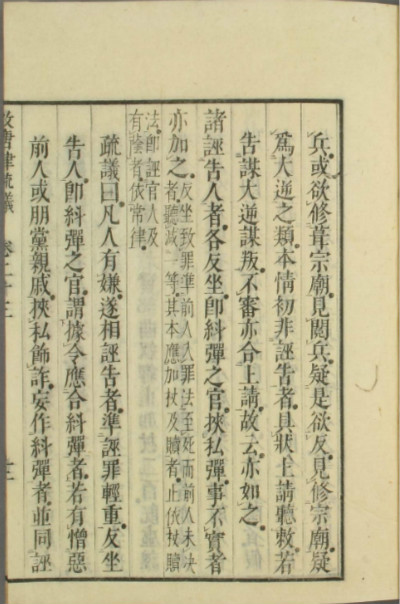 兵或欲修葺宗廟見閱兵疑是欲反見修宗廟疑
爲大逆之類本情初非誣告者具狀上請聽敕若
告謀大逆謀叛不審亦合上請故云亦如之
諸誣告人者各反坐卽糾彈之官挾私彈事不實者
亦加之
反坐致罪準前人入罪法至死而前人未決
者聽減一等其本應加杖及贖者止依杖贖
法卽誣官人及
有蔭者依常律
疏議曰凡人有嫌遂相誣告者準誣罪輕重反坐
告人卽糾彈之官謂據令應合糾彈者若有憎惡
前人或朋黨親戚挾私飾詐妄作糾彈者並同誣
故唐律疏議 卷二十三